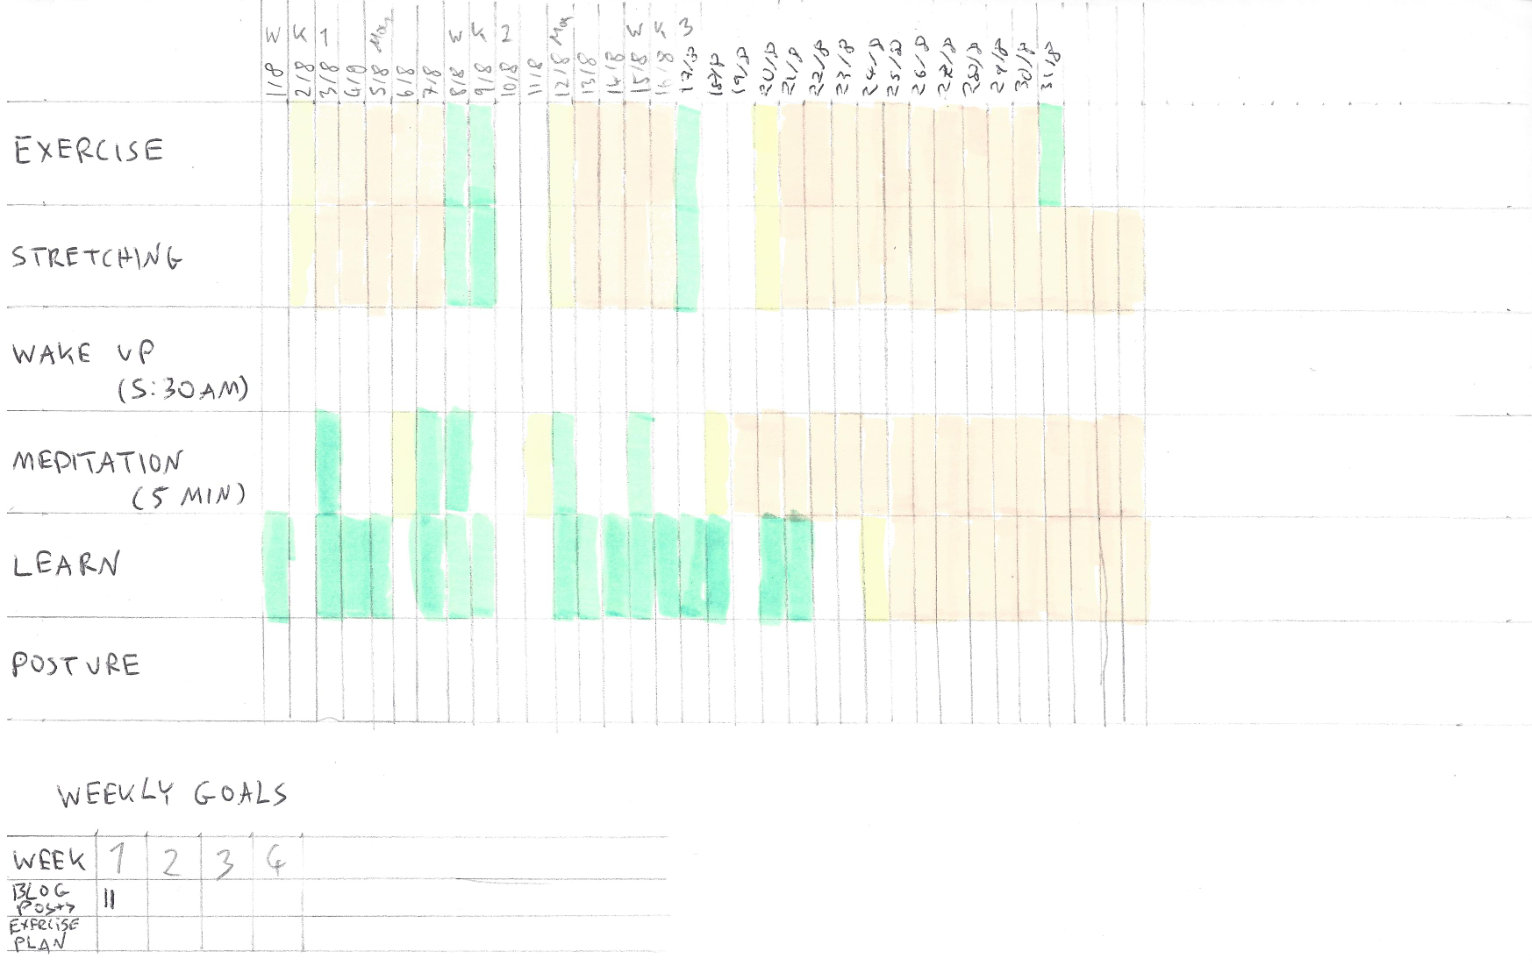 W K 1 W K 2 W K 3
1/8 2/8 3/8 4/8 5/8 6/8 7/8 8/8 9/8 10/8 11/8 12/8 13/8 14/8 15/8 16/8 17/8 18/8 19/8 20/8 21/8 22/8 23/8 24/8 25/8 26/8 27/8 28/8 29/8 30/8 31/8
EXERCISE
STRETCHING
WAKE UP
(5:30AM)
MEDITATION
(5 MIN)
LEARN
POSTURE
WEEKLY GOALS
WEEK 1 2 3 4
BLOG
POSTS
EXERCISE
PLAN